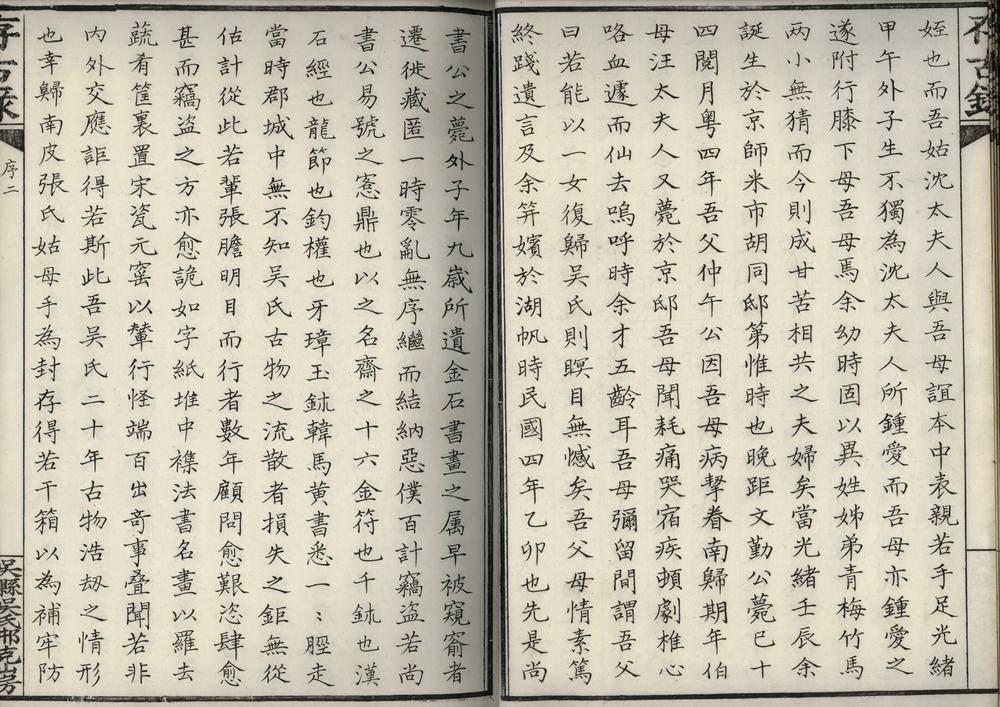 姪也而吾姑沈太夫人與吾母誼本中表親若手足光緒
甲午外子生不獨為沈太夫人所鍾愛而吾母亦鍾愛之
遂附行膝下母吾母焉余幼時固以異姓姊弟青梅竹馬
兩小無猜而今則成甘苦相共之夫婦矣當光緒壬辰余
誕生於京師米市胡同邸第惟時也晚距文勤公薨已十
四閱月粵四年吾父仲午公因吾母病挈眷南歸期年伯
母汪太夫人又薨於京邸吾母聞耗痛哭宿疾頓劇椎心
咯血遽而仙去嗚呼時余才五齡耳吾母彌留間謂吾父
曰若能以一女復歸吳氏則瞑目無憾矣吾父母情素篤
終踐遺言及余笄嬪於湖帆時民國四年乙卯也先是尚
書公之薨外子年九歲所遺金石書畫之属早被窺窬者
遷徙藏匿一時零亂無序繼而結納惡僕百計竊盜若尚
書公易號之愙鼎也以之名齋之十六金符也千鉥也漢
石經也龍節也鈞權也牙璋玉鉥韓馬黃書悉一〻脛走
當時郡城中無不知吳氏古物之流散者損失之鉅無從
估計從此若輩張膽明目而行者數年顧問愈艱恣肆愈
甚而竊盜之方亦愈詭如字紙堆中襍法書名畫以羅去
蔬肴筐裏置宋瓷元窰以輦行怪端百出奇事叠聞若非
內外交應詎得若斯此吾吳氏二十年古物浩刼之情形
也幸歸南皮張氏姑母手為封存得若干箱以為補牢防
序二